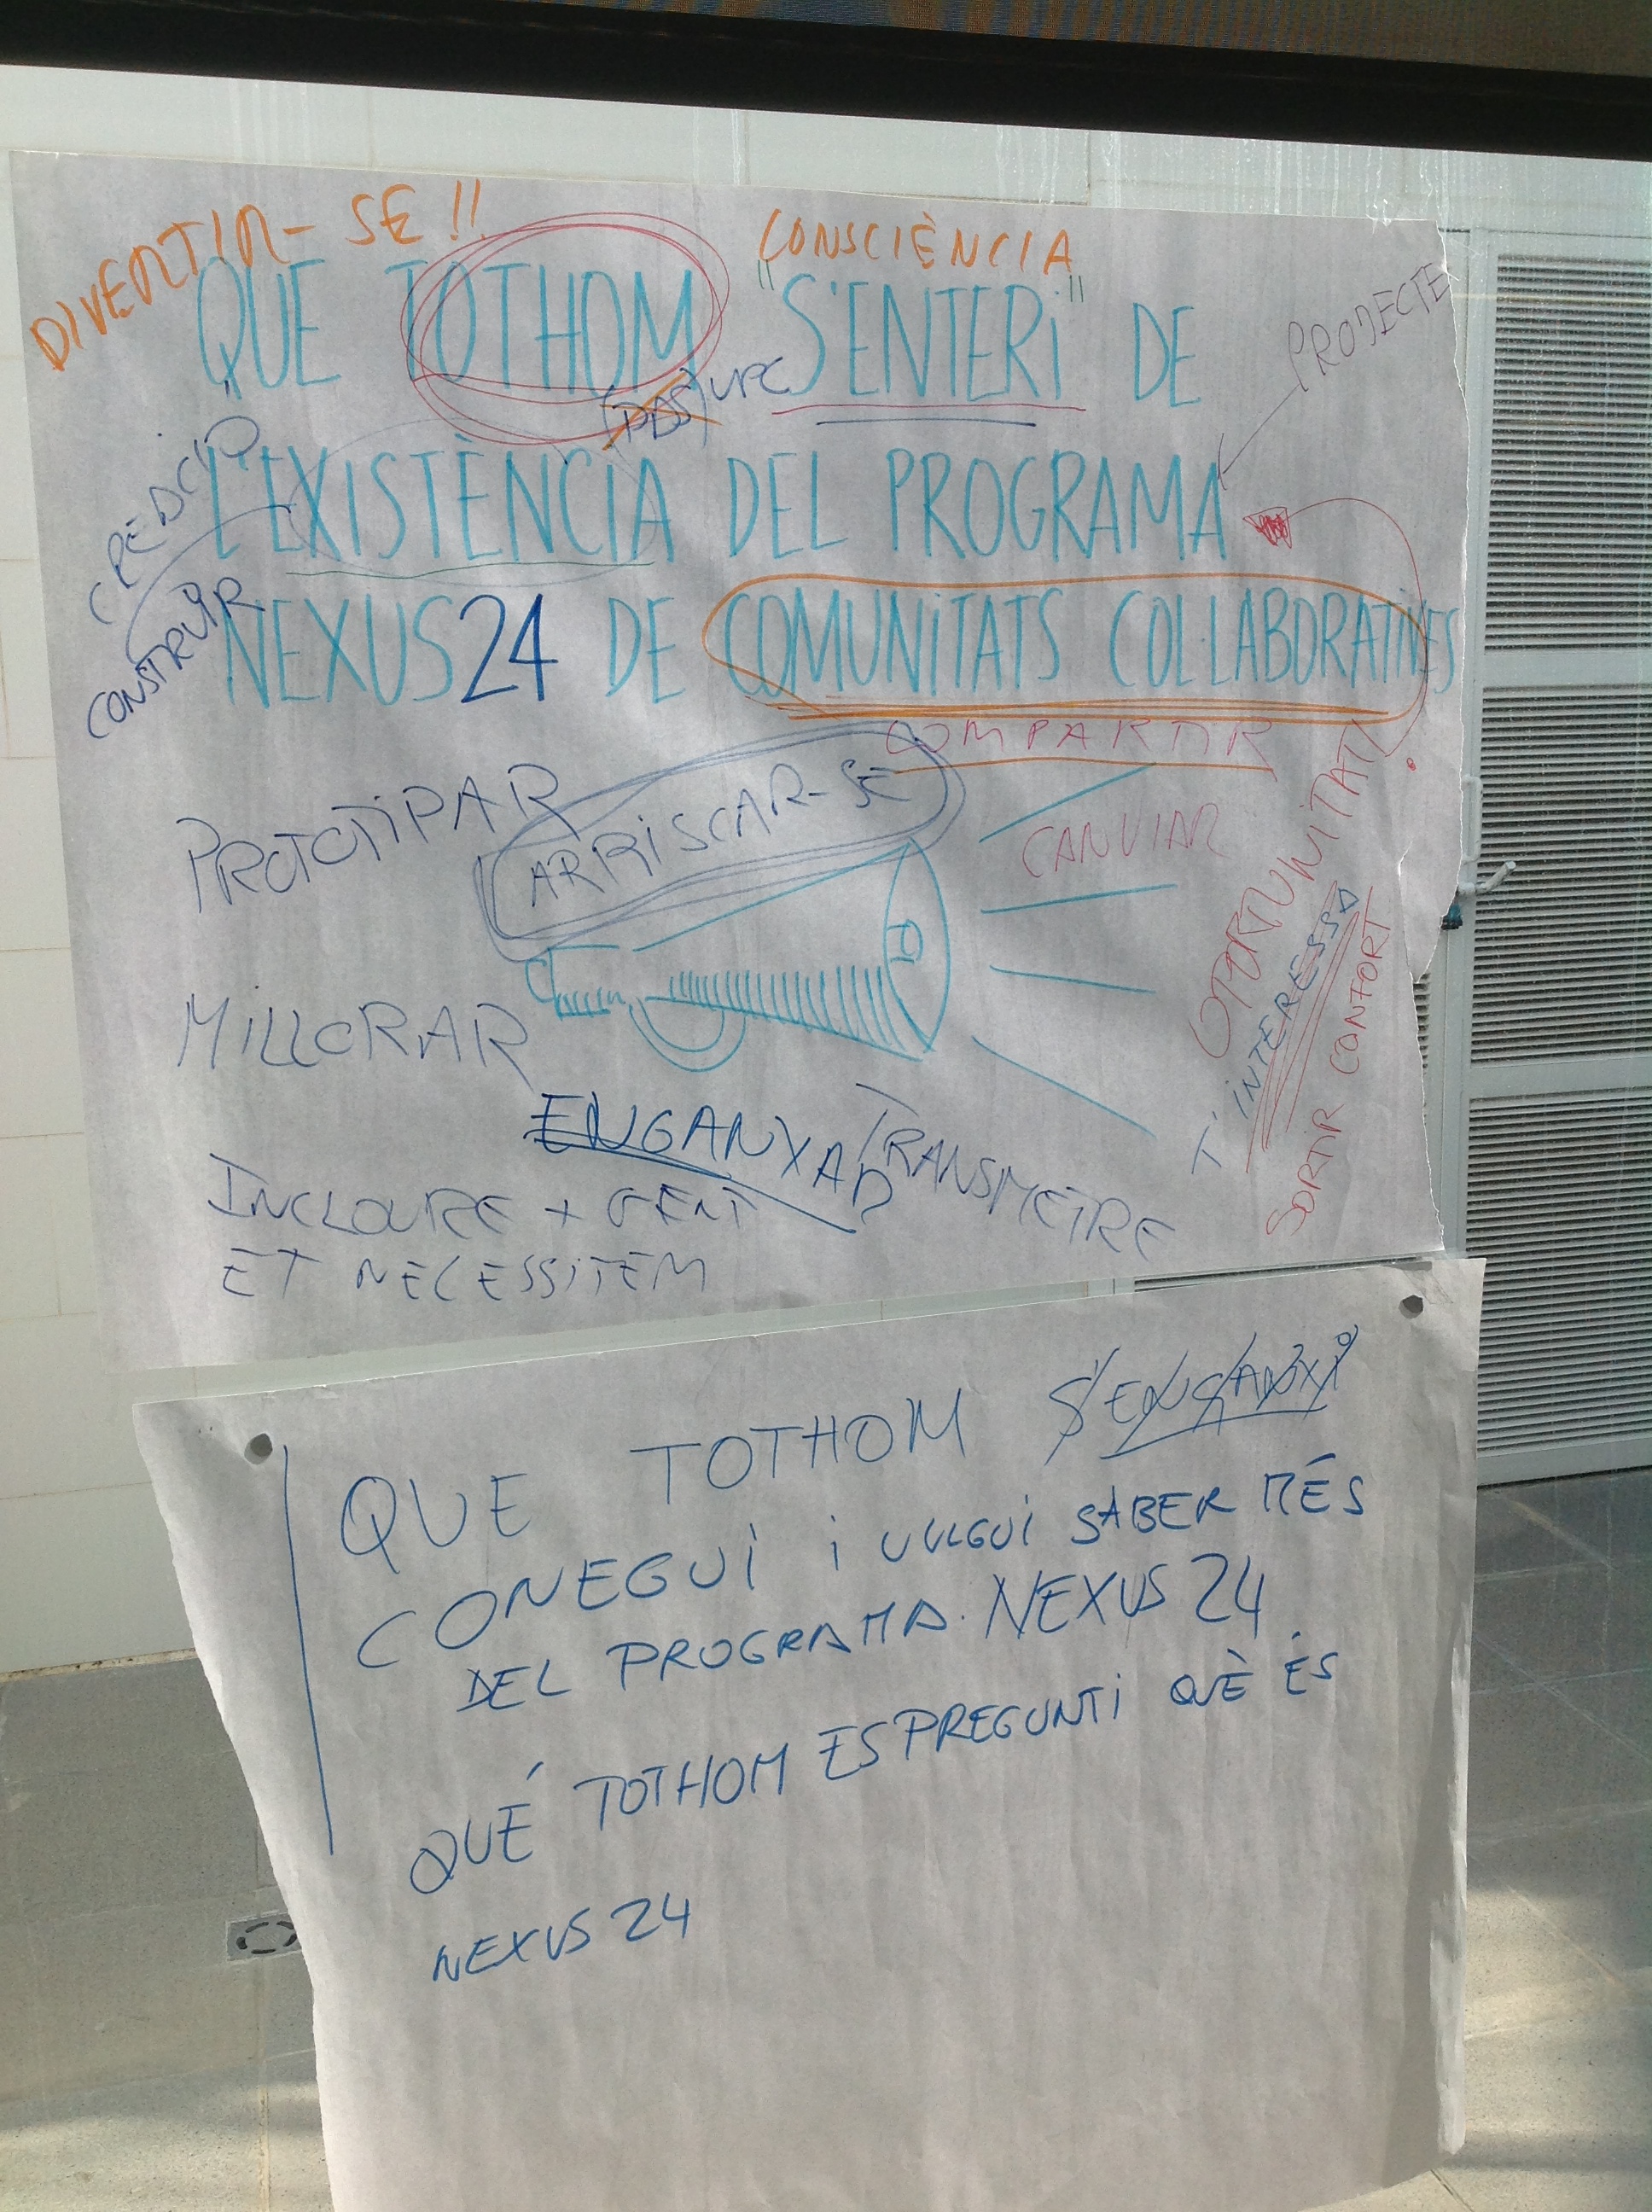 DIVERTIR-SE!!
CONSCIÈNCIA
QUE TOTHOM "S'ENTERI" DE
(PDS) UPC
PROJECTE
L'EXISTÈNCIA DEL PROGRAMA
CONSTRUIR
NEXUS24 DE COMUNITATS COL·LABORATIVES
COMPARTIR
PROTOTIPAR
ARRISCAR-SE
CANVIAR
OPORTUNITAT!
T'INTERESSA
SORTIR CONFORT
MILLORAR
ENGANXAR
TRANSMETRE
INCLOURE + GENT
ET NECESSITEM
QUE TOTHOM S'ENGANXI
CONEGUI i VULGUI SABER MÉS
DEL PROGRAMA NEXUS 24
QUÉ TOTHOM ES PREGUNTI QUÈ ÉS
NEXUS 24